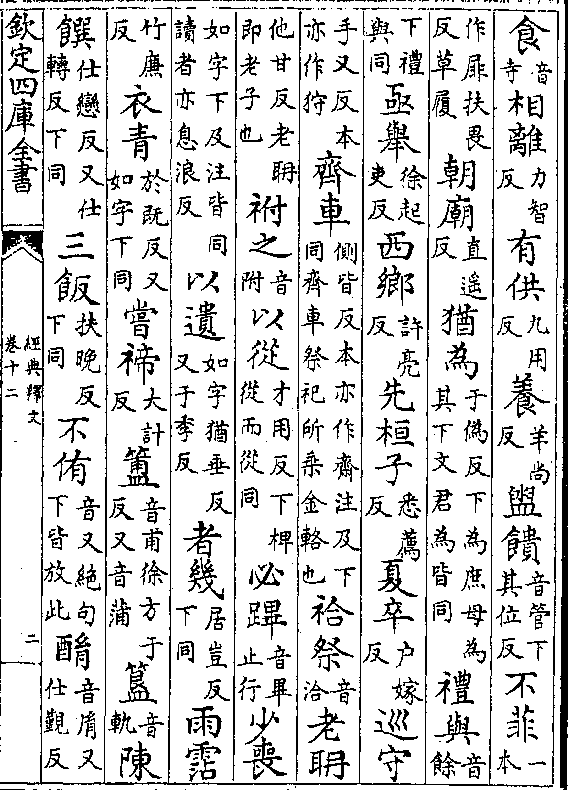 食音寺相離力智反有供九用反養羊尚反盥饋音管下其位反不菲一本
作扉扶畏反草屨朝廟直遥反猶為于偽反下為庶母為其下文君為皆同禮與音餘
下禮與同亟舉徐起吏反西鄉許亮反先桓子悉薦反夏卒户嫁反巡守
手又反本亦作狩齊車側皆反本亦作齋注及下同齊車祭祀所乗金輅也祫祭音洽老聃
他甘反老聃即老子也祔之音附以從才用反下椑從而從同必蹕音畢止行少喪
如字下及注皆同讀者亦息浪反以遺如字猶垂反又于季反者幾居豈反下同雨霑
竹廉反衣青於既反又如字下同當禘大計反簠音甫徐方于反又音蒲簋音軌陳
饌仕戀反又仕轉反下同三飯扶晚反下同不侑音又絕句下皆放此酳音胤又仕覲反
欽定四庫全書
經典釋文
卷十二
二